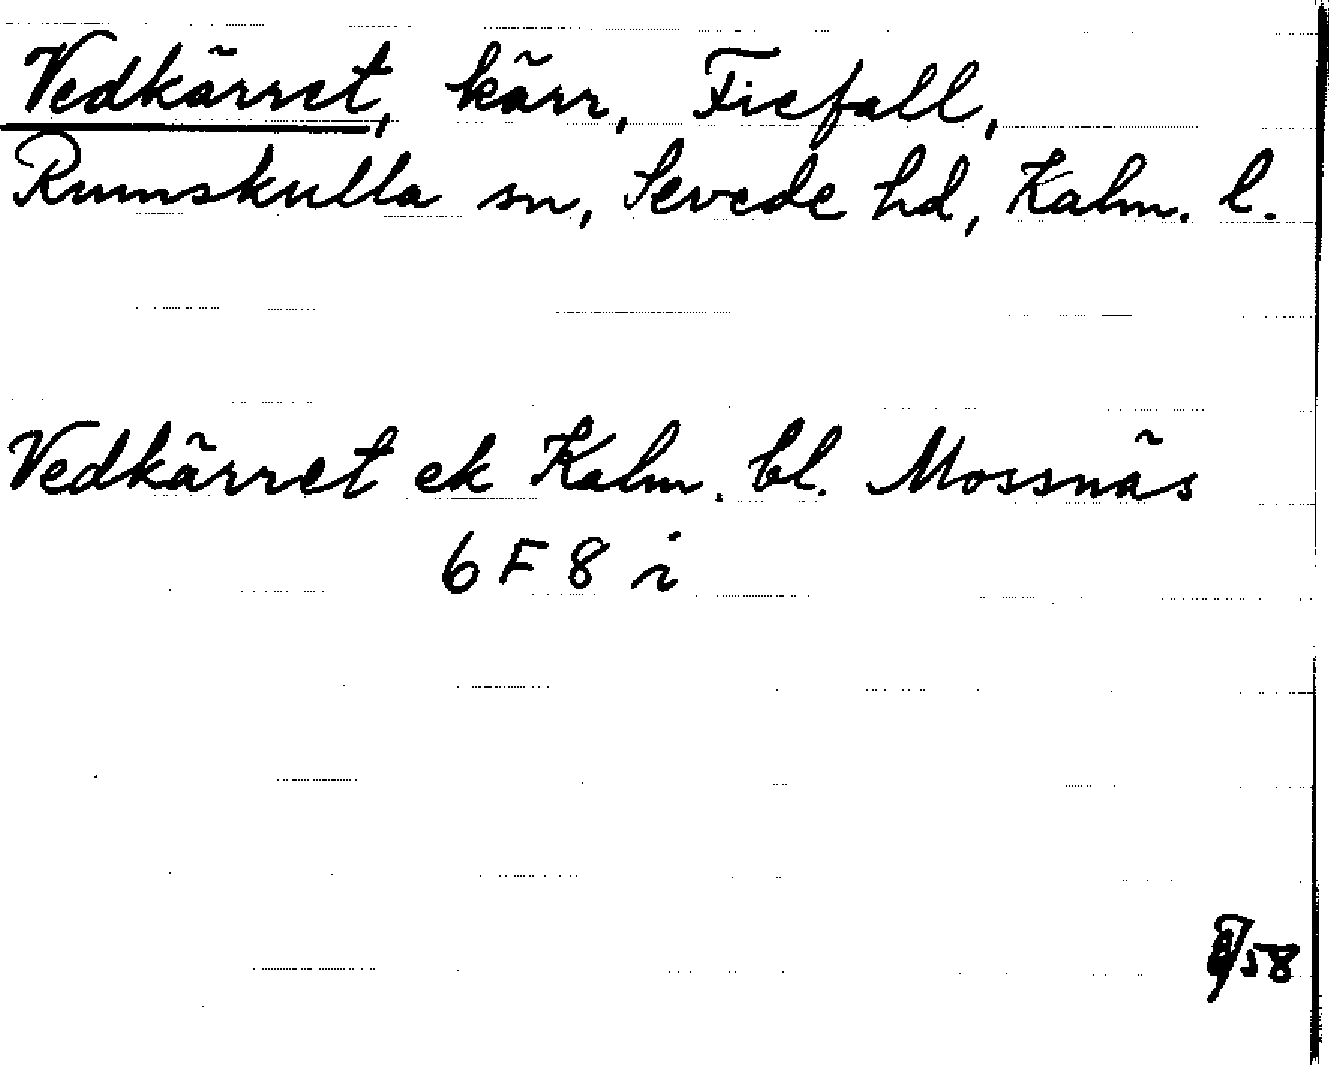 Vedkärret, kärr, Ficfall,
Rumskulla sn, Sevede hd, Kalm. l.
Vedkärret ek Kalm. bl. Mossnäs
6 F 8 i